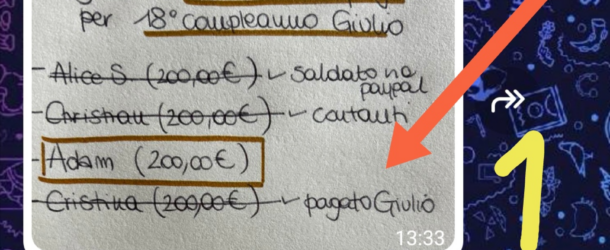 per 18° compleanno Giulio
- Alice S. (200,00€) ✓ saldato no
paypal
- Christian (200,00€) ✓ contanti
- Adam (200,00€)
- Cristina (200,00€) ✓ pagato Giulio
13:33
1